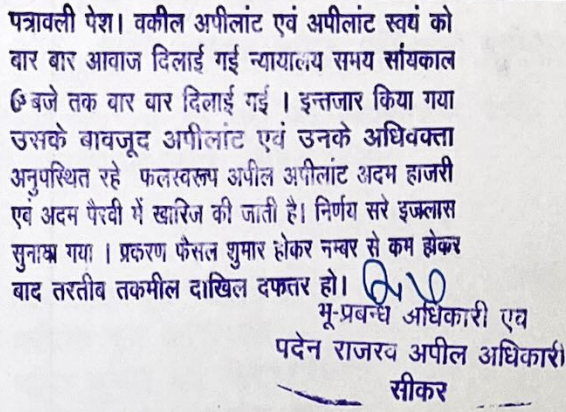 पत्रावली पेश। वकील अपीलांट एवं अपीलांट स्वयं को
बार बार आवाज दिलाई गई न्यायालय समय सांयकाल
6 बजे तक वार वार दिलाई गई । इन्तजार किया गया
उसके बावजूद अपीलांट एवं उनके अधिवक्ता
अनुपस्थित रहे फलस्वरूप अपील अपीलांट अदम हाजरी
एवं अदम पैरवी में खारिज की जाती है। निर्णय सरे इजलास
सुनाया गया । प्रकरण फैसल शुमार होकर नम्बर से कम होकर
बाद तरतीब तकमील दाखिल दफतर हो।
भू-प्रबन्ध अधिकारी एव
पदेन राजरव अपील अधिकारी
सीकर